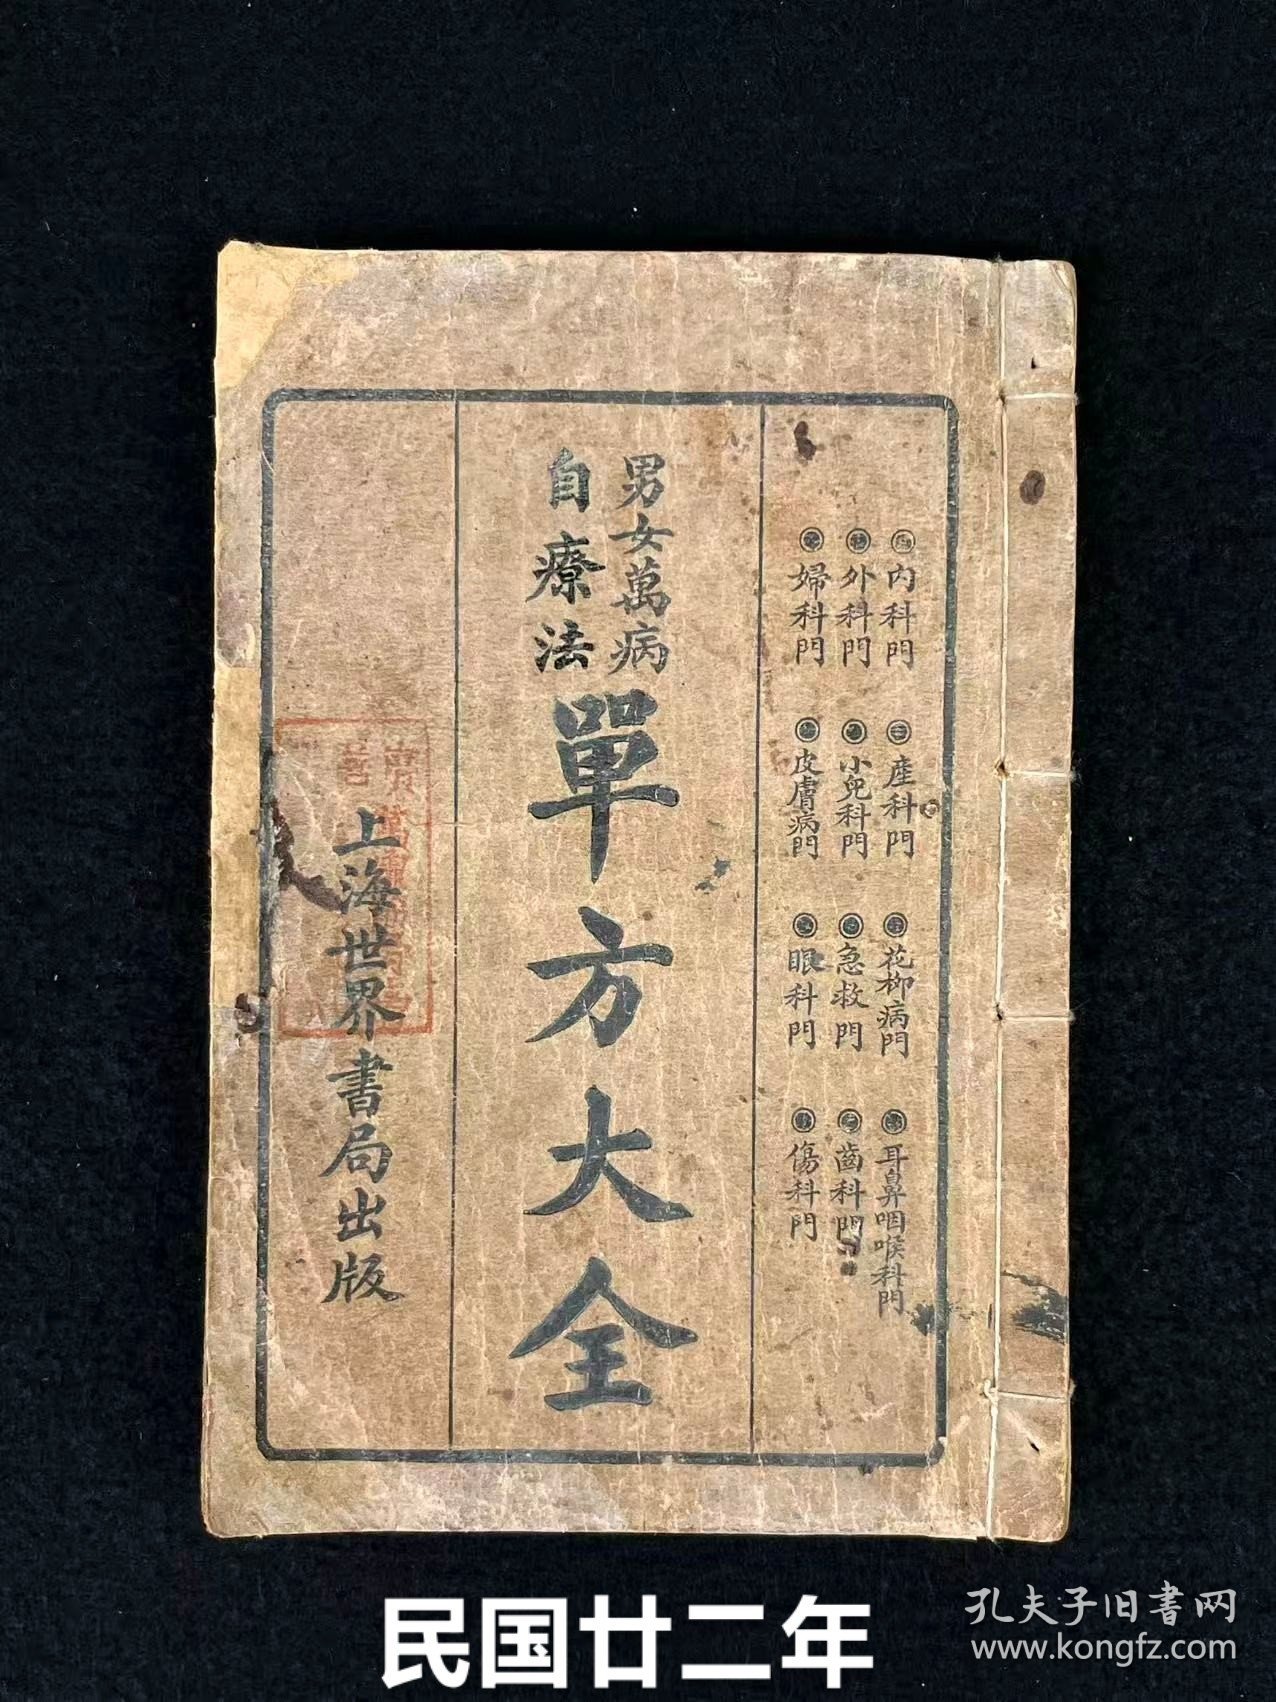 內科門
產科門
花柳病門
耳鼻咽喉科門
外科門
小兒科門
急救門
齒科門
婦科門
皮膚病門
眼科門
傷科門
男女萬病
自療法
單方大全
上海世界書局出版
民国廿二年
孔夫子旧書网
www.kongfz.com